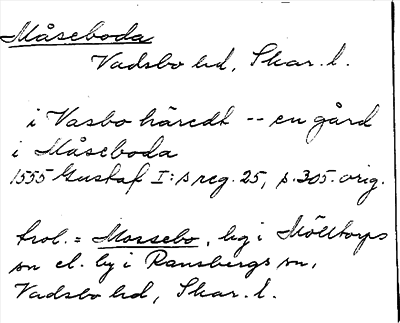 Måseboda
Vadsbo hd, Skar. l.
i Vasbo häredt -- en gård
i Måseboda
1555 Gustaf I:s reg. 25, s. 305. orig.
trol. = Mossebo, by i Mölltorps
sn el. by i Ransbergs sn,
Vadsbo hd, Skar. l.